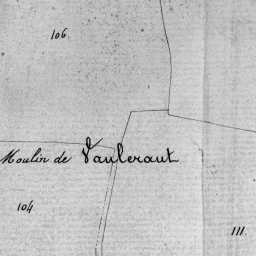 106
Moulin de Vauleraut
104
111.